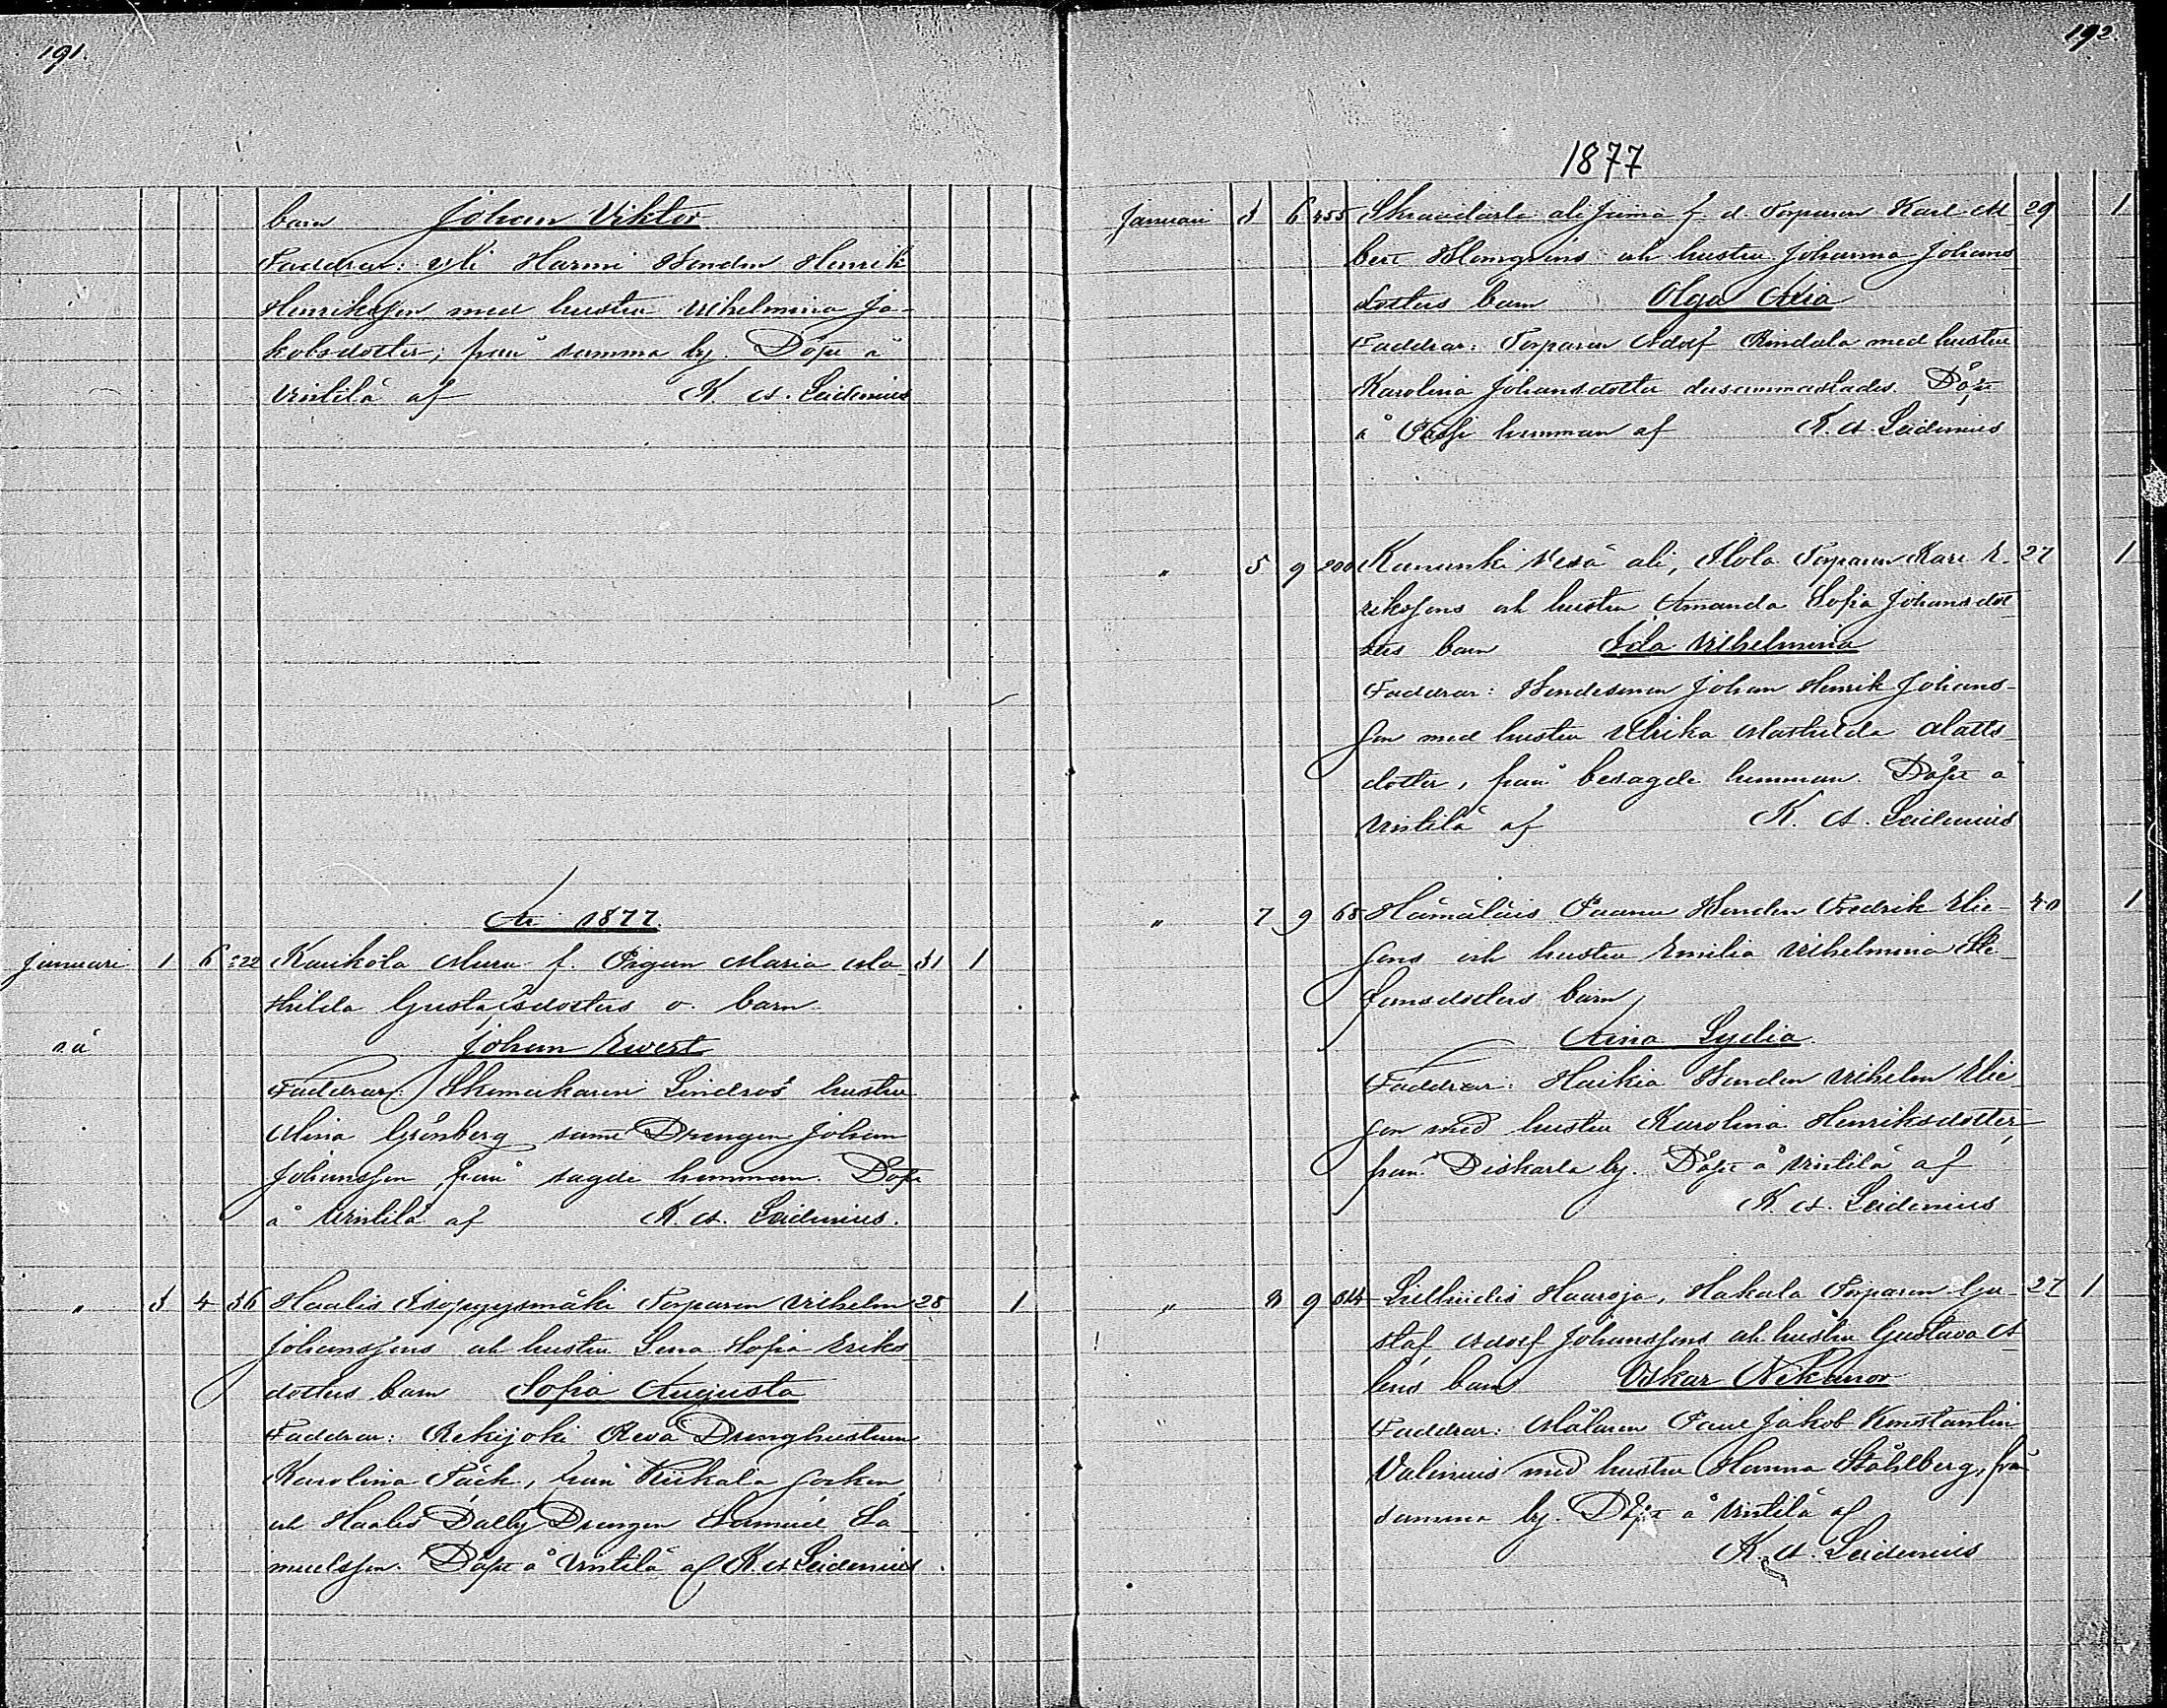 191.
barn Johan Viktor
Faddrar: Yli Harmi Bonden Henrik
Henriksson med hustru Vilhelmina Ja-
kobsdotter, från samma by. Döpt å
Vintilä af K. A. Leidenius
År 1877.
Januari 1 6 222 Kaukola Mura f. Pigan Maria Ma- 31 1
thilda Gustafsdotters o. barn
Johan Evert
Faddrar: Skomakaren Lindros hustru
Mina Grönberg samt Drengen Johan
Johansson, från sagde hemman. Döpt
å Vintilä af K. A. Leidenius.
" 3 4 36 Haalis Isopyysmäki Torparen Vilhelm 28 1
Johanssons och hustru Lena Sofia Eriks-
dotters barn Sofia Augusta
Faddrar: Rekijoki Reva Drenghustrun
Karolina Täck, från Kiikala socken
och Haalis Dally Drengen Samuel Sa-
muelsson. Döpt å Vintilä af K. A. Leidenius.
192.
1877
Januari 3 6 255 Skraddarla ali Juma f. d. Torparen Karl Al- 29 1
bert Blomqvists och hustru Johanna Johans
dotters barn Olga Maria
Faddrar: Torparen Adolf Rindala med hustru
Karolina Johansdotter dersammastädes. Döpt
å hemman af K. A. Leidenius
" 5 9 200 Kanunki Vesa ali, Ilola Torparen Karl E- 27 1
rikssons och hustru Amanda Sofia Johansdot
ters barn Ida Vilhelmina
Faddrar: Bondesonen Johan Henrik Johans-
son med hustru Ulrika Mathilda Matts-
dotter, från besagde hemman. Döpt å
Vintilä af K. A. Leidenius
" 7 9 68 Hämäläis Paanu Bonden Fredrik Elie- 40 1
sons och hustru Emilia Vilhelmina Ste-
fansdotters barn
Aina Lydia
Faddrar: Haikia Bonden Vilhelm Elie-
son med hustru Karolina Henriksdotter
från Diskarla by. Döpt å Vintilä af
K. A. Leidenius
" 8 9 314 Haaroja, Hakala Torparen Gu- 27 1
staf Adolf Johanssons och hustru Gustava A
lens barn Oskar Nikanor
Faddrar: Målaren Paul Jakob Konstantin
Valenius med hustru Hanna Ståhlberg, från
samma by. Döpt å Vintilä af
K. A. Leidenius